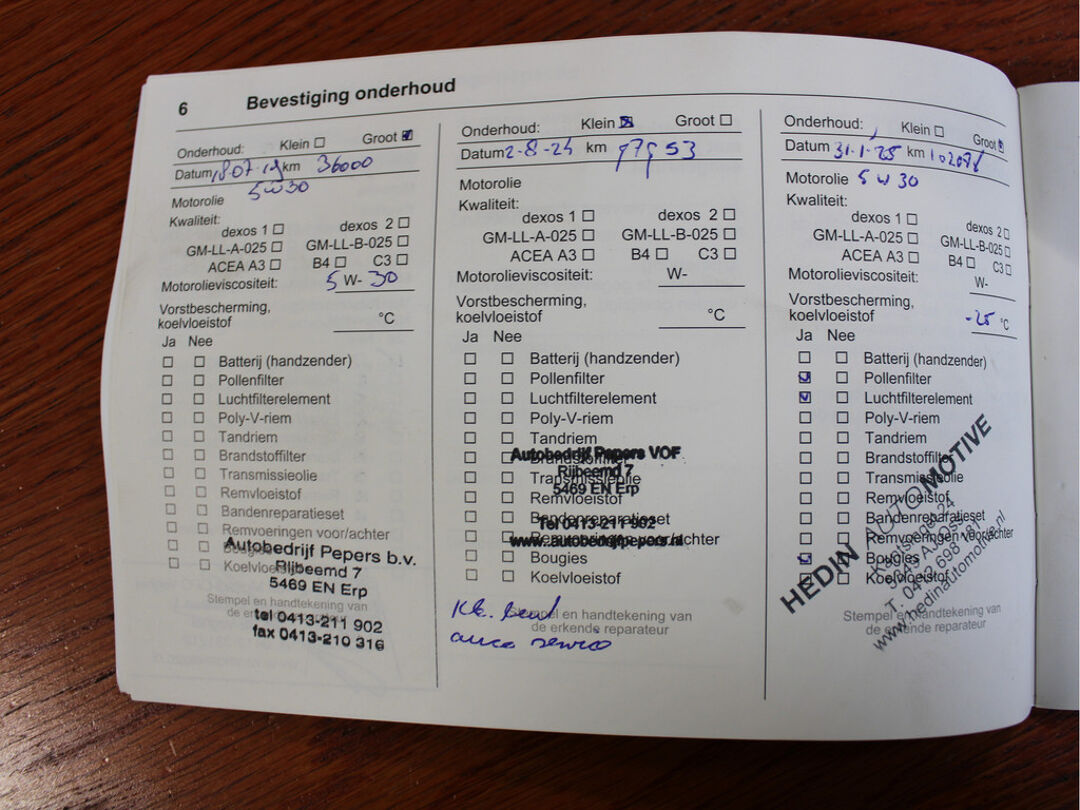 6 Bevestiging onderhoud
Onderhoud: Klein ☐ Groot ☑
Datum 18-07-19 km 36000
Motorolie 5W30
Kwaliteit:
dexos 1 ☐ dexos 2 ☐
GM-LL-A-025 ☐ GM-LL-B-025 ☐
ACEA A3 ☐ B4 ☐ C3 ☐
Motorolieviscositeit: 5 W- 30
Vorstbescherming,
koelvloeistof °C
Ja Nee
☐ ☐ Batterij (handzender)
☐ ☐ Pollenfilter
☐ ☐ Luchtfilterelement
☐ ☐ Poly-V-riem
☐ ☐ Tandriem
☐ ☐ Brandstoffilter
☐ ☐ Transmissieolie
☐ ☐ Remvloeistof
☐ ☐ Bandenreparatieset
☐ ☐ Remvoeringen voor/achter
☐ ☐ Bougies
☐ ☐ Koelvloeistof
Autobedrijf Pepers b.v.
Rijbeemd 7
5469 EN Erp
tel 0413-211 902
fax 0413-210 316
Stempel en handtekening van
de erkende reparateur
Onderhoud: Klein ☒ Groot ☐
Datum 2-8-24 km 97953
Motorolie
Kwaliteit:
dexos 1 ☐ dexos 2 ☐
GM-LL-A-025 ☐ GM-LL-B-025 ☐
ACEA A3 ☐ B4 ☐ C3 ☐
Motorolieviscositeit: W-
Vorstbescherming,
koelvloeistof °C
Ja Nee
☐ ☐ Batterij (handzender)
☐ ☐ Pollenfilter
☐ ☐ Luchtfilterelement
☐ ☐ Poly-V-riem
☐ ☐ Tandriem
☐ ☐ Brandstoffilter
☐ ☐ Transmissieolie
☐ ☐ Remvloeistof
☐ ☐ Bandenreparatieset
☐ ☐ Remvoeringen voor/achter
☐ ☐ Bougies
☐ ☐ Koelvloeistof
Autobedrijf Pepers VOF
Rijbeemd 7
5469 EN Erp
Tel 0413-211 902
www.autobedrijfpepers.nl
Stempel en handtekening van
de erkende reparateur
Onderhoud: Klein ☐ Groot ☑
Datum 31-1-25 km
Motorolie 5W30
Kwaliteit:
dexos 1 ☐ dexos 2 ☐
GM-LL-A-025 ☐ GM-LL-B-025 ☐
ACEA A3 ☐ B4 ☐ C3 ☐
Motorolieviscositeit: W-
Vorstbescherming,
koelvloeistof -25 °C
Ja Nee
☐ ☐ Batterij (handzender)
☑ ☐ Pollenfilter
☑ ☐ Luchtfilterelement
☐ ☐ Poly-V-riem
☐ ☐ Tandriem
☐ ☐ Brandstoffilter
☐ ☐ Transmissieolie
☐ ☐ Remvloeistof
☐ ☐ Bandenreparatieset
☐ ☐ Remvoeringen voor/achter
☑ ☐ Bougies
☐ ☐ Koelvloeistof
HEDIN AUTOMOTIVE
www.hedinautomotive.nl
Stempel en handtekening van
de erkende reparateur